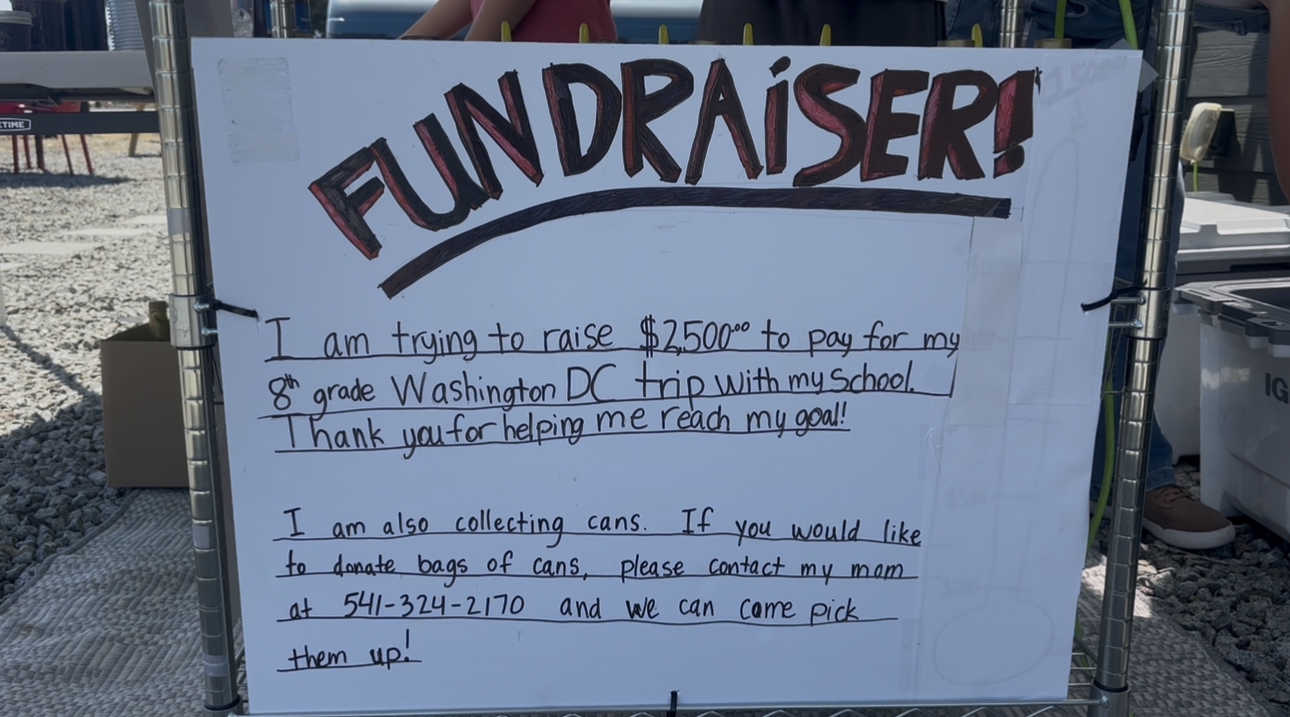 FUNDRAiSER!
I am trying to raise $2,500.00 to pay for my
8th grade Washington DC trip with my school.
Thank you for helping me reach my goal!
I am also collecting cans. If you would like
to donate bags of cans, please contact my mom
at 541-324-2170 and we can come pick
them up!
ETIME
IG